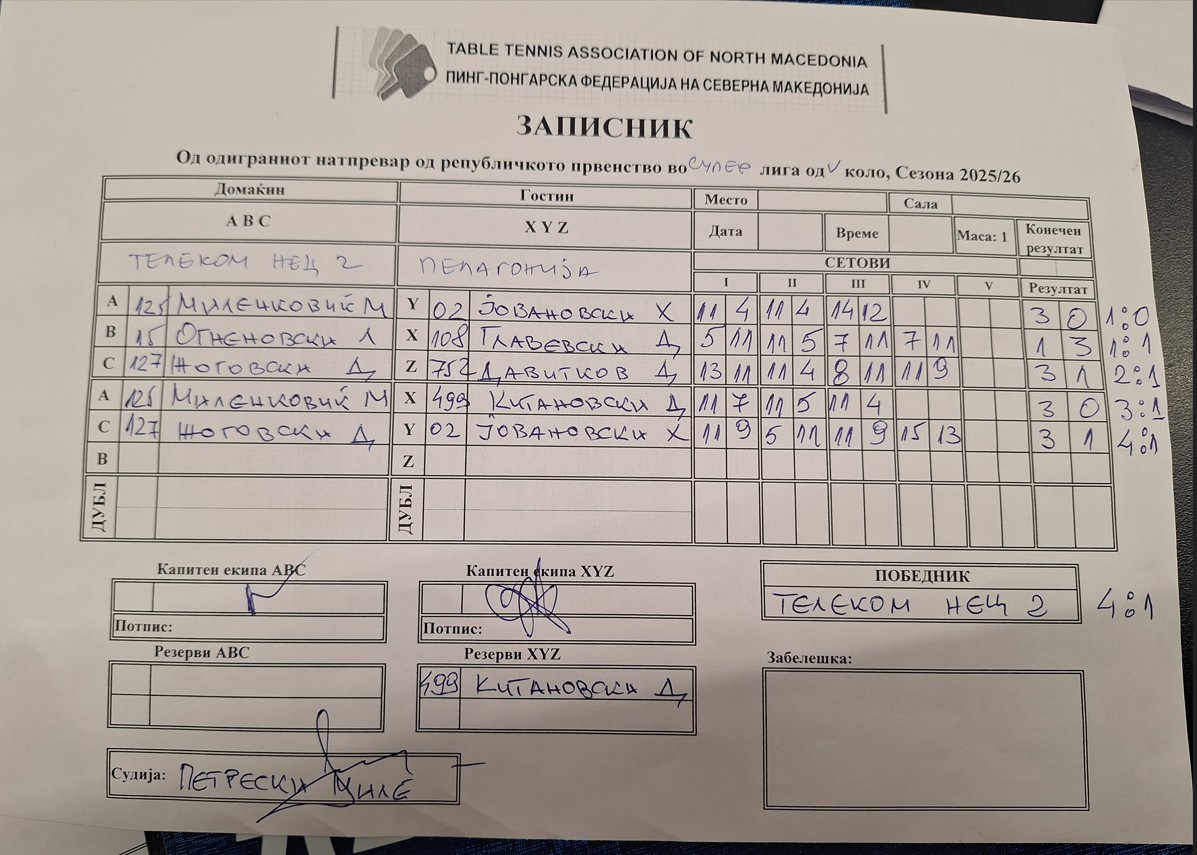 TABLE TENNIS ASSOCIATION OF NORTH MACEDONIA
ПИНГ-ПОНГАРСКА ФЕДЕРАЦИЈА НА СЕВЕРНА МАКЕДОНИЈА
ЗАПИСНИК
Од одиграниот натпревар од републичкото првенство во СУПЕР лига од V коло, Сезона 2025/26
Домаќин Гостин Место Сала
A B C X Y Z Дата Време Маса: 1 Конечен резултат
ТЕЛЕКОМ НЕЦ 2 ПЕЛАГОНИЈА СЕТОВИ
I II III IV V Резултат
A 125 МИЛЕНКОВИЌ М Y 02 ЈОВАНОВСКИ Х 11 4 11 4 14 12 3 0 1:0
B 15 ОГНЕНОВСКИ Л X 108 ГЛАВЕВСКИ Д 5 11 11 5 7 11 7 11 1 3 1:1
C 127 ЖОГОВСКИ Д Z 752 ДАВИТКОВ Д 13 11 11 4 8 11 11 9 3 1 2:1
A 125 МИЛЕНКОВИЌ М X 499 КИТАНОВСКИ Д 11 7 11 5 11 4 3 0 3:1
C 127 ЖОГОВСКИ Д Y 02 ЈОВАНОВСКИ Х 11 9 5 11 11 9 15 13 3 1 4:1
B Z
ДУБЛ ДУБЛ
Капитен екипа ABC Капитен екипа XYZ ПОБЕДНИК
ТЕЛЕКОМ НЕЦ 2 4:1
Потпис: Потпис:
Резерви ABC Резерви XYZ Забелешка:
499 КИТАНОВСКИ Д
Судија: ПЕТРЕСКИ МИЛЕ